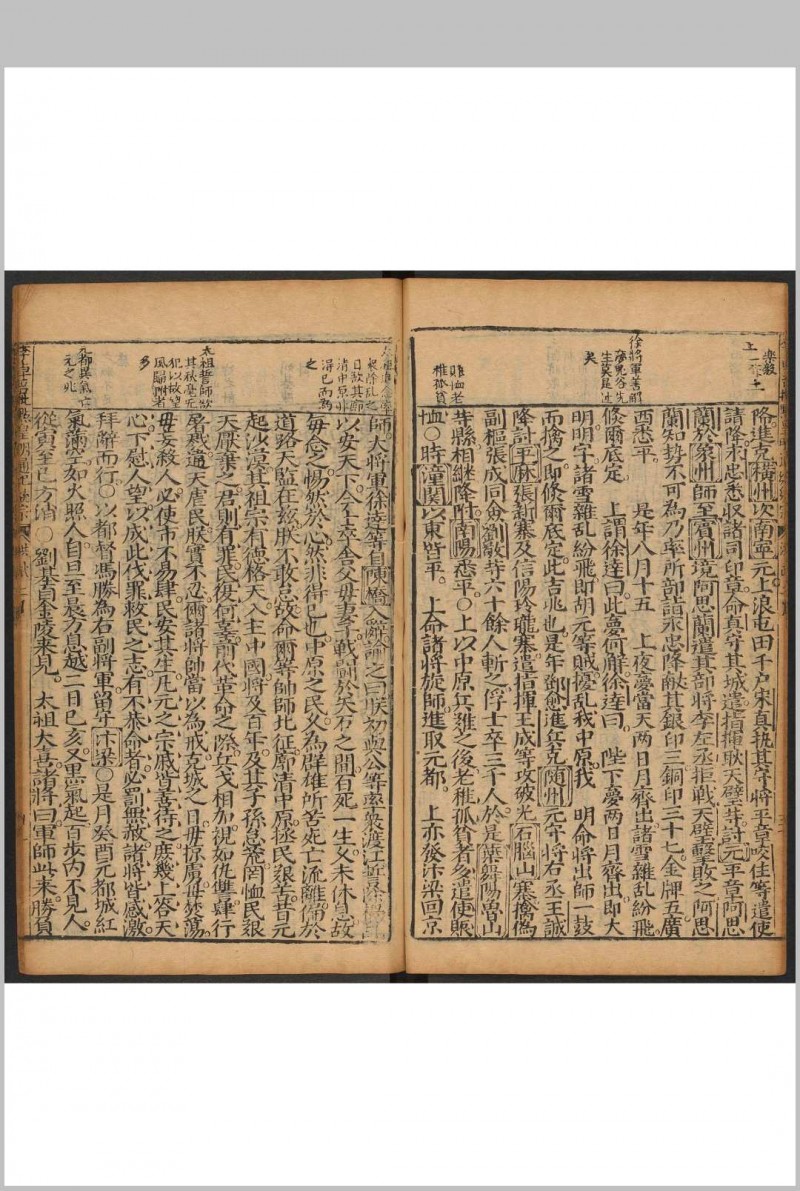 降進克橫州次南寧元上浪屯田千戶宋真執其守將平章咬住等遣使
請降永忠悉收諸司印章命真守其城遣指揮耿天璧等討元平章阿思
蘭於象州師至賓州境阿思蘭遣其部將李左丞拒戰天璧擊敗之阿思
蘭知勢不可為乃率所部詣永忠降獻其銀印三銅印三十七金牌五廣
西悉平 是年八月十五 上夜夢當天兩日月齊出諸雪雜乱紛飛
倏爾底定 上謂徐達曰此夢何觧徐達曰 陛下夢兩日月齊出即大
明明字諸雪雜乱紛飛即胡元等賊擾乱我中原我 明命將出師一鼓
而擒之即倏爾底定此吉兆也是年鄧愈進兵克隨州元守將右丞王誠
降討平麻張新寨及信陽玲瓏寨遣指揮王成等攻破光石腦山寨擒偽
副樞張成同僉劉敬等六十餘人斬之俘士卒三千人於是葉舞陽魯山
等縣相継降附南陽悉平○上以中原兵難之後老稚孤貧者多遣使賑
恤○時潼関以東皆平 上命諸將旋師進取元都 上亦發汴梁回京
樂毅
上一
徐將軍善觧
夢兆
生莫是過
矣
賑恤老
稚孤貧
師大將軍徐達等自陳橋入辭諭之曰朕初與公等率衆渡江
以安天下今士卒舍父母妻子戰鬭於矢石之間百死一生又未休息故
每念之惕然於心然非得已也中原之民久為群雄所苦死亡流離徧於
道路天監在玆朕不敢怠故命爾等帥師北征廓清中原拯民艱苦昔元
起沙漠其祖宗有德格天入主中國將及百年及其子孫怠荒罔恤民艱
天厭棄之君則有罪民復何辜前代革命之際兵戈相加視如仇讐肆行
屠戮違天虐民朕實不忍爾諸將帥當以為戒克城之日毋掠虜毋焚蕩
毋妄殺人必使市不易肆民安其生凡元之宗戚皆善待之庶幾上答天
心下慰人望以成此伐罪救民之志有不恭命者必罰無赦諸將皆感激
拜辭而行○以都督馮勝為右副將軍留守汴梁○是月癸酉元都城紅
氣滿空如火照人自旦至晨方息越二日乙亥又黒氣起百歩內不見人
從寅至巳方消○劉基自金陵来見 太祖大喜諸將曰軍師此来勝負
衆除乱之
日欲其師
清中原非
得已而為
之
太祖誓師狀
其秋毫无
犯以故望
風歸附者
多
元都異氣亡
元之兆